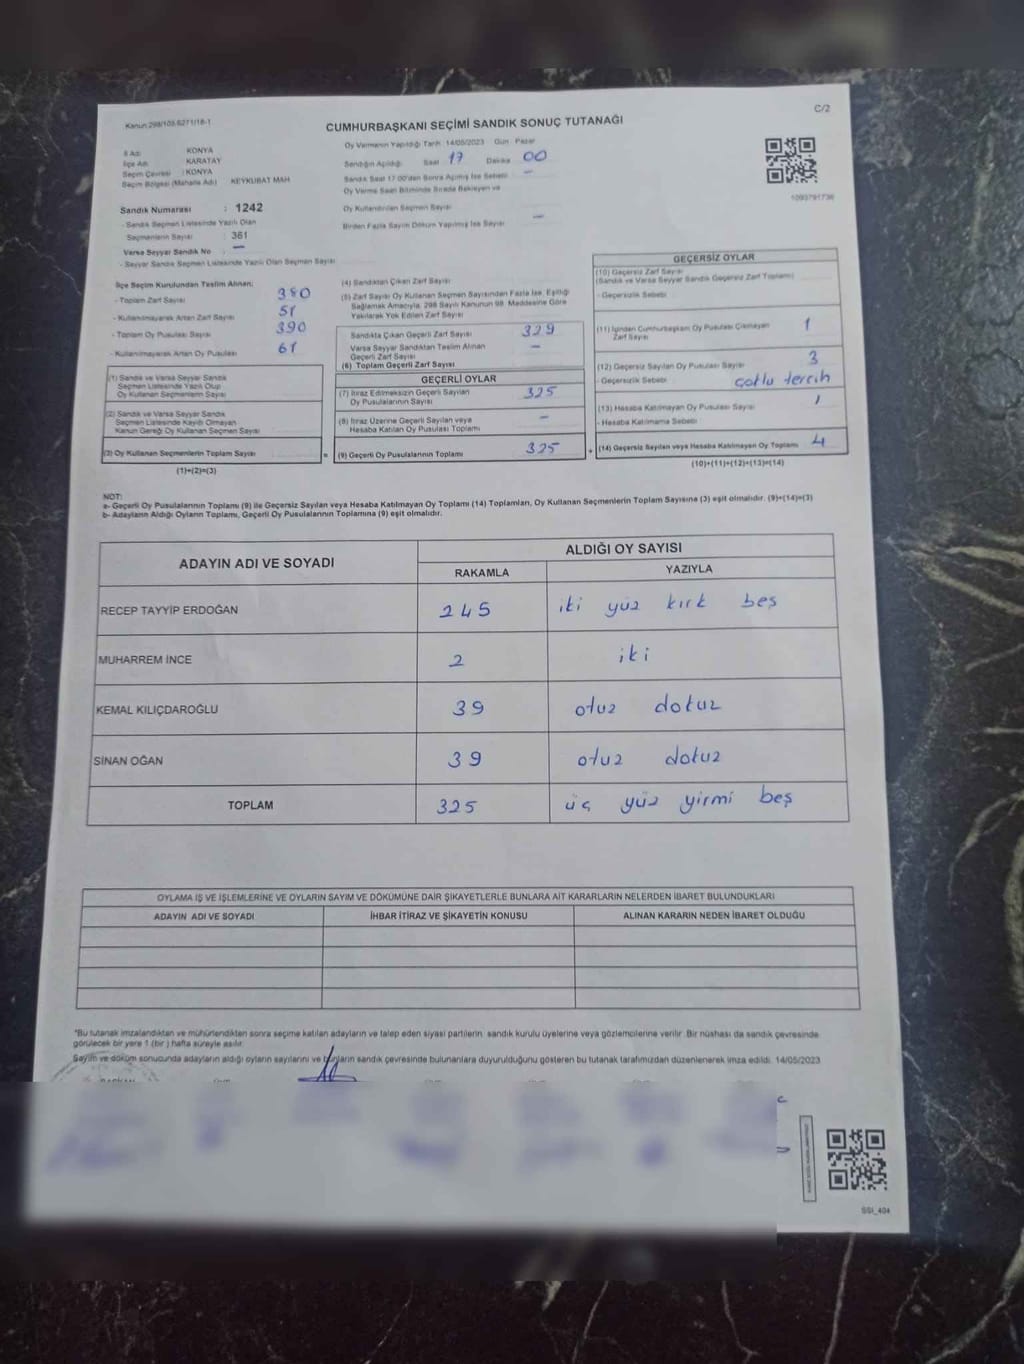 Kanun:298/105-6271/16-1
C/2
CUMHURBAŞKANI SEÇİMİ SANDIK SONUÇ TUTANAĞI
İl Adı : KONYA
İlçe Adı : KARATAY
Seçim Çevresi : KONYA
Seçim Bölgesi (Mahalle Adı) : KEYKUBAT MAH
Sandık Numarası : 1242
- Sandık Seçmen Listesinde Yazılı Olan
Seçmenlerin Sayısı : 361
Varsa Seyyar Sandık No : –
- Seyyar Sandık Seçmen Listesinde Yazılı Olan Seçmen Sayısı
Oy Vermenin Yapıldığı Tarih :14/05/2023 Gün : Pazar
Sandığın Açıldığı Saat : 17 Dakika : 00
Sandık Saat 17.00'den Sonra Açılmış İse Sebebi : –
Oy Verme Saati Bitiminde Sırada Bekleyen ve
Oy Kullandırılan Seçmen Sayısı
Birden Fazla Sayım Döküm Yapılmış İse Sayısı –
1093791736
İlçe Seçim Kurulundan Teslim Alınan;
- Toplam Zarf Sayısı 380
- Kullanılmayarak Artan Zarf Sayısı 51
- Toplam Oy Pusulası Sayısı 390
- Kullanılmayarak Artan Oy Pusulası 61
(1) Sandık ve Varsa Seyyar Sandık
Seçmen Listesinde Yazılı Olup
Oy Kullanan Seçmenlerin Sayısı
(2) Sandık ve Varsa Seyyar Sandık
Seçmen Listesinde Kayıtlı Olmayan
Kanun Gereği Oy Kullanan Seçmen Sayısı
(3) Oy Kullanan Seçmenlerin Toplam Sayısı =
(1)+(2)=(3)
(4) Sandıktan Çıkan Zarf Sayısı
(5) Zarf Sayısı Oy Kullanan Seçmen Sayısından Fazla İse, Eşitliği
Sağlamak Amacıyla, 298 Sayılı Kanunun 98. Maddesine Göre
Yakılarak Yok Edilen Zarf Sayısı
Sandıkta Çıkan Geçerli Zarf Sayısı 329
Varsa Seyyar Sandıktan Teslim Alınan
Geçerli Zarf Sayısı –
(6) Toplam Geçerli Zarf Sayısı
GEÇERLİ OYLAR
(7) İtiraz Edilmeksizin Geçerli Sayılan
Oy Pusulalarının Sayısı 325
(8) İtiraz Üzerine Geçerli Sayılan veya
Hesaba Katılan Oy Pusulası Toplamı –
(9) Geçerli Oy Pusulalarının Toplamı 325 +
GEÇERSİZ OYLAR
(10) Geçersiz Zarf Sayısı
(Sandık ve Varsa Seyyar Sandık Geçersiz Zarf Toplamı)
- Geçersizlik Sebebi:
(11) İçinden Cumhurbaşkanı Oy Pusulası Çıkmayan
Zarf Sayısı 1
(12) Geçersiz Sayılan Oy Pusulası Sayısı 3
- Geçersizlik Sebebi çoklu tercih
(13) Hesaba Katılmayan Oy Pusulası Sayısı
- Hesaba Katılmama Sebebi
(14) Geçersiz Sayılan veya Hesaba Katılmayan Oy Toplamı 4
(10)+(11)+(12)+(13)=(14)
NOT:
a- Geçerli Oy Pusulalarının Toplamı (9) ile Geçersiz Sayılan veya Hesaba Katılmayan Oy Toplamı (14) Toplamları, Oy Kullanan Seçmenlerin Toplam Sayısına (3) eşit olmalıdır. (9)+(14)=(3)
b- Adayların Aldığı Oyların Toplamı, Geçerli Oy Pusulalarının Toplamına (9) eşit olmalıdır.
ADAYIN ADI VE SOYADI ALDIĞI OY SAYISI
RAKAMLA YAZIYLA
RECEP TAYYİP ERDOĞAN 245 iki yüz kırk beş
MUHARREM İNCE 2 iki
KEMAL KILIÇDAROĞLU 39 otuz dokuz
SİNAN OĞAN 39 otuz dokuz
TOPLAM 325 üç yüz yirmi beş
OYLAMA İŞ VE İŞLEMLERİNE VE OYLARIN SAYIM VE DÖKÜMÜNE DAİR ŞİKAYETLERLE BUNLARA AİT KARARLARIN NELERDEN İBARET BULUNDUKLARI
ADAYIN ADI VE SOYADI İHBAR İTİRAZ VE ŞİKAYETİN KONUSU ALINAN KARARIN NEDEN İBARET OLDUĞU
*Bu tutanak imzalandıktan ve mühürlendikten sonra seçime katılan adayların ve talep eden siyasi partilerin sandık kurulu üyelerine veya gözlemcilerine verilir. Bir nüshası da sandık çevresinde
görülecek bir yere 1 (bir ) hafta süreyle asılır.
Sayım ve döküm sonucunda adayların aldığı oyların sayılarını ve bunların sandık çevresinde bulunanlara duyurulduğunu gösteren bu tutanak tarafımızdan düzenlenerek imza edildi. 14/05/2023
SSI_404